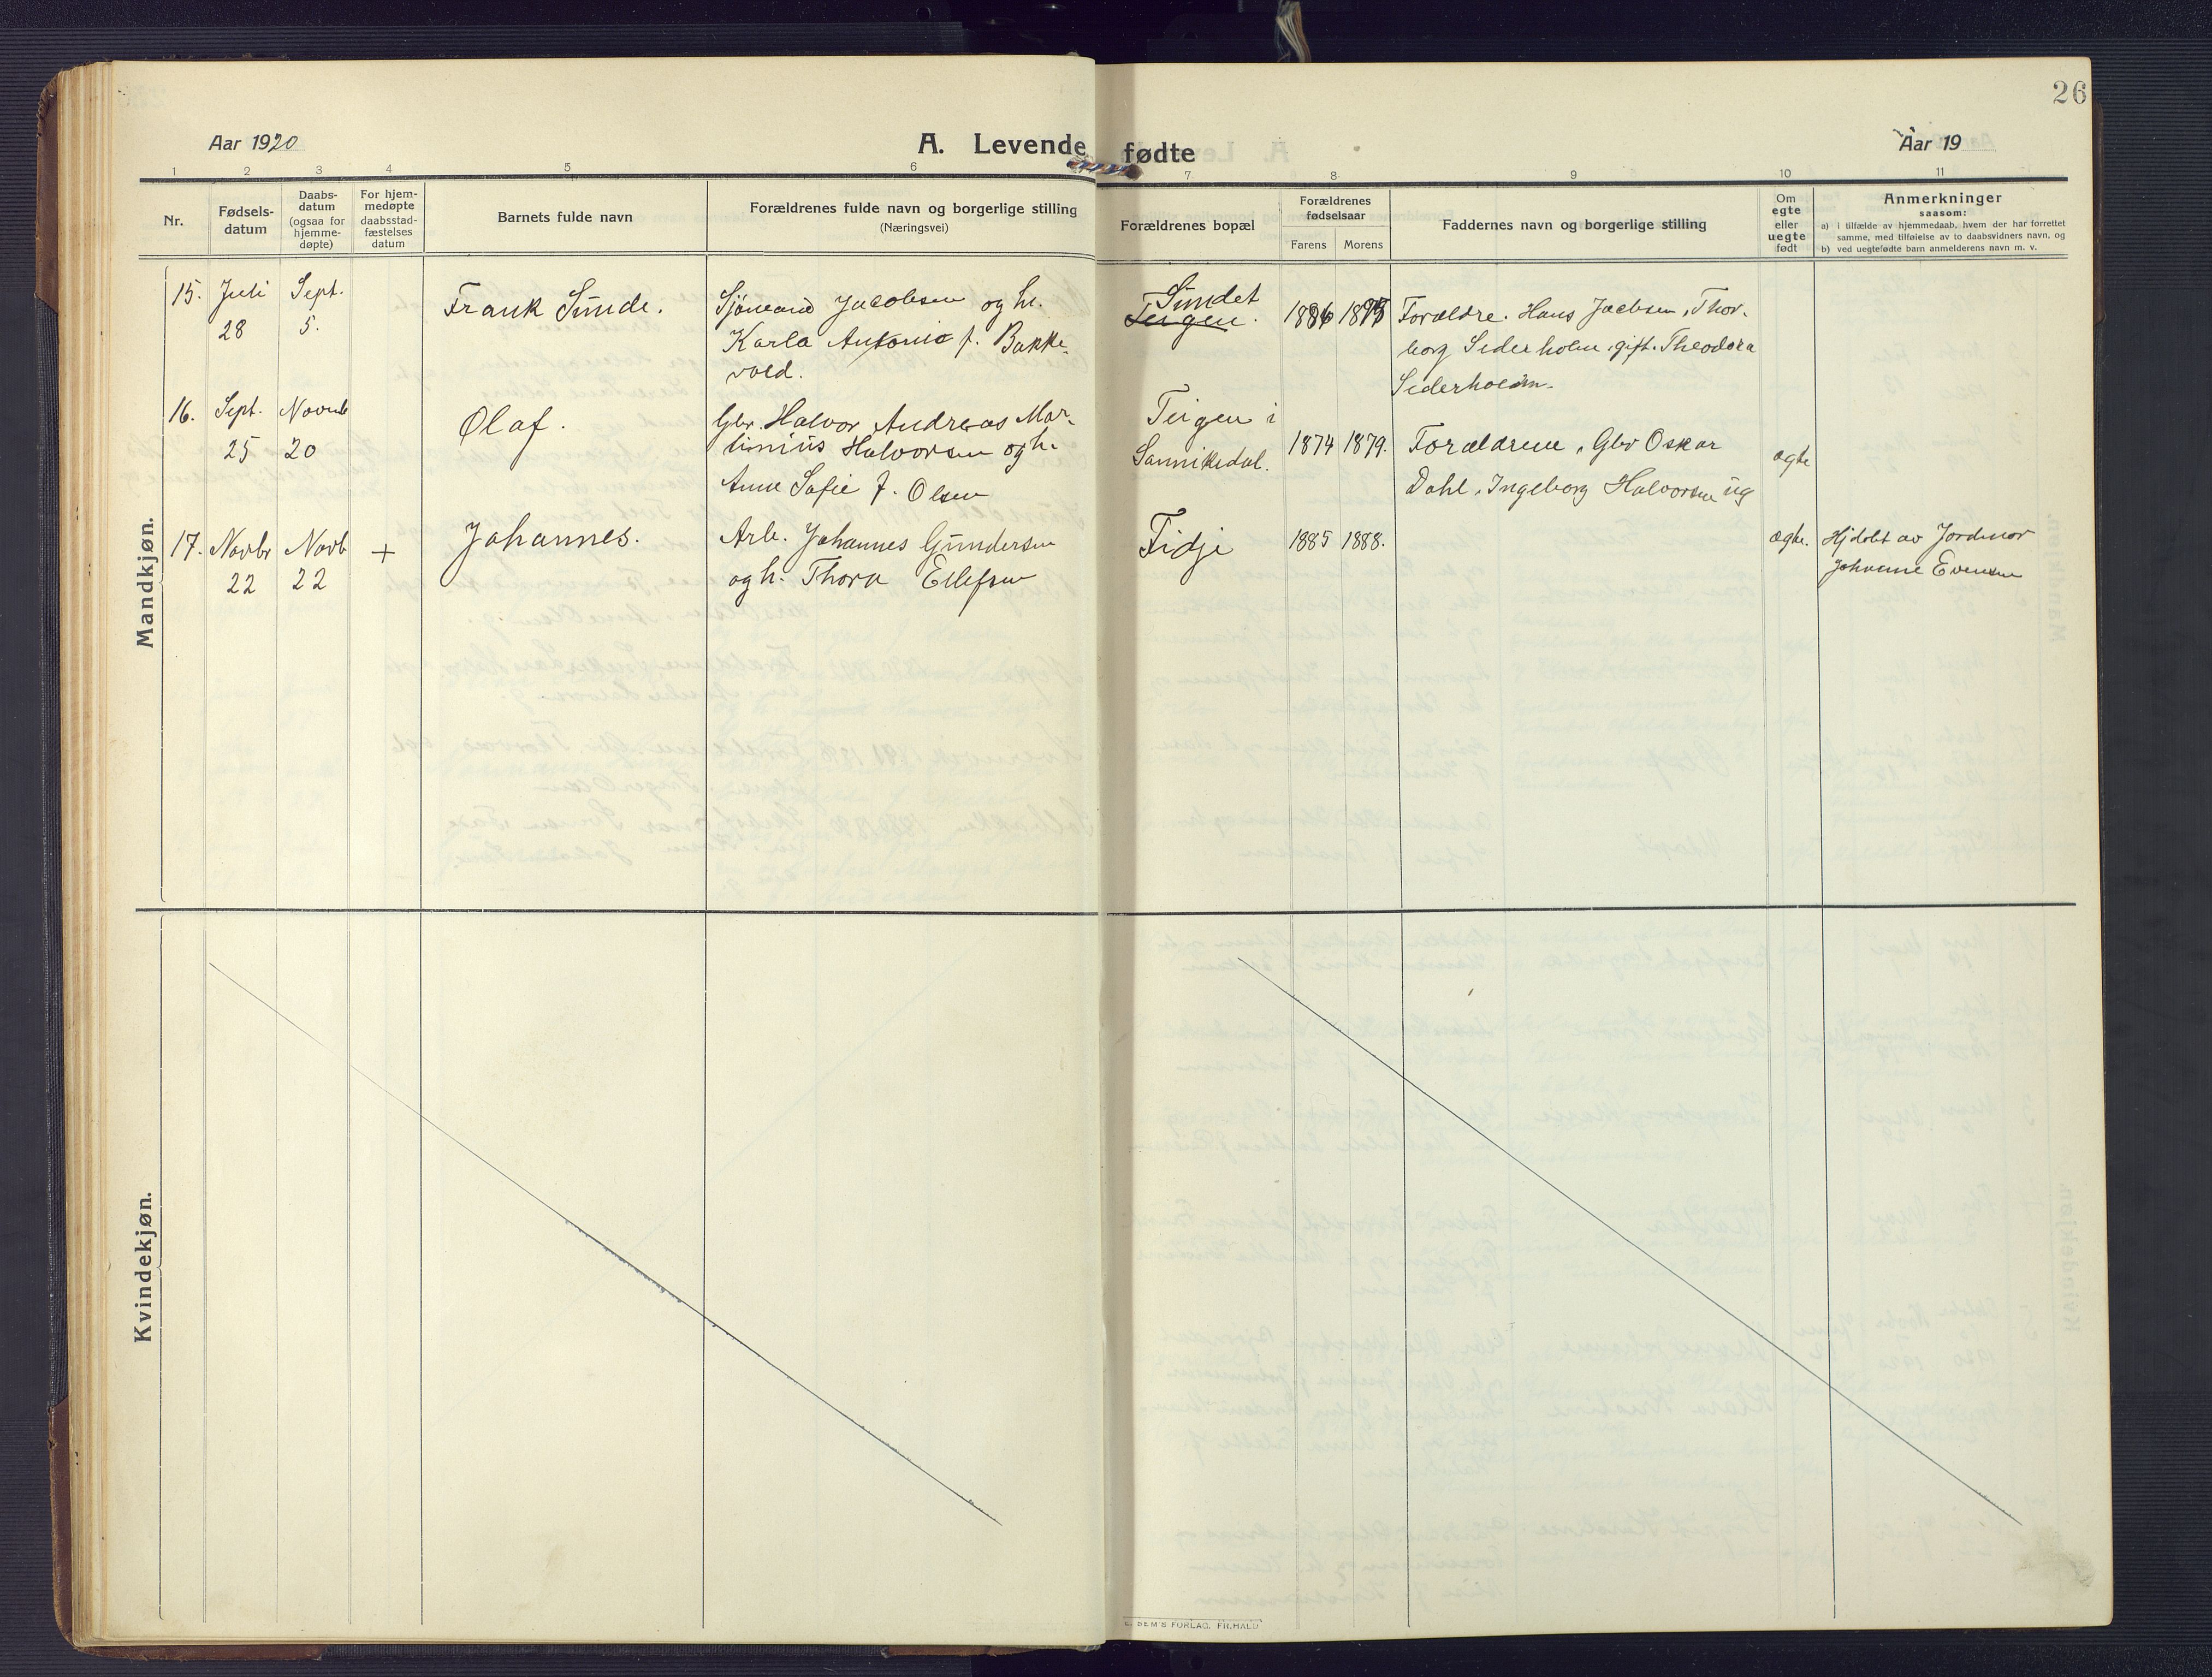 26
Aar 1920
A. Levende fødte
Aar 19
1 2 3 4 5 6 7 8 9 10 11
Nr.
Fødsels-
datum
Daabs-
datum
(ogsaa for
hjemme-
døpte)
For hjem-
medøpte
daabsstad-
fæstelses
datum
Barnets fulde navn
Forældrenes fulde navn og borgerlige stilling
(Næringsvei)
Forældrenes bopæl
Forældrenes
fødselsaar
Farens
Morens
Faddernes navn og borgerlige stilling
Om
egte
eller
uegte
født
Anmerkninger
saasom:
a) i tilfælde av hjemmedaab, hvem der har forrettet
samme, med tilføielse av to daabsvidners navn, og
b) ved uegtefødte barn anmelderens navn m. v.
Mandkjøn.
15. Juli
28
Sept.
5.
Frank Sunde.
Sjømand Jacobsen og h.
Karla Antonie f. Bakke-
vold.
Sundet
Teigen.
1886
Forældre. Hans Jacobsen, Thor-
borg Sederholm, gift. Theodora
Sederholm.
16. Sept.
25
Novemb
20
Olaf.
Gbr. Halvor Andreas Mar-
tinius Halvorsen og h.
Anne Sofie f. Olsen
Teigen i
Sannikedal.
1874 1879.
Forældrene, Gbr Oskar
Dahl, Ingeborg Halvorsen ug
ægte
17. Novbr
22
Novb
22
+
Johannes.
Arb. Johannes Gundersen
og h. Thora Ellefsen
Fidje
1885 1888.
ægte.
Hjdøbt av Jordmor
Johanne Evensen
Kvindekjøn.
SEM'S FORLAG, FR.HALD